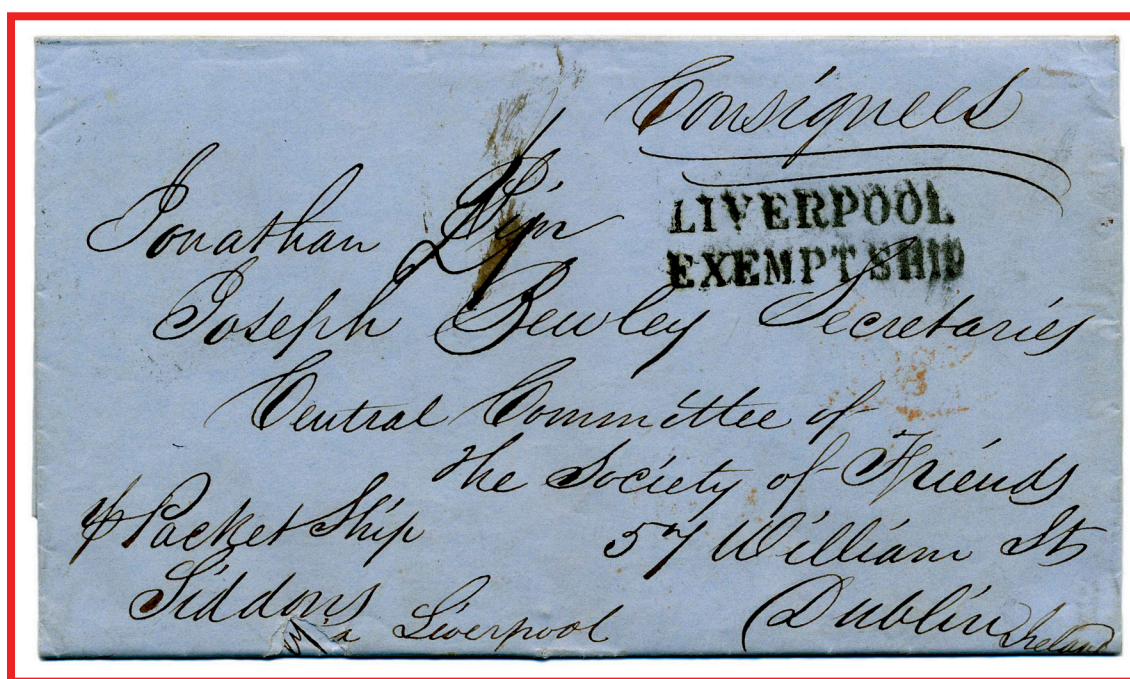 Consignees
LIVERPOOL
EXEMPT SHIP
Jonathan Pim
Joseph Bewley Secretaries
Central Committee of
the Society of Friends
57 William St
Dublin Ireland
⅌ Packet Ship
Siddons
via Liverpool